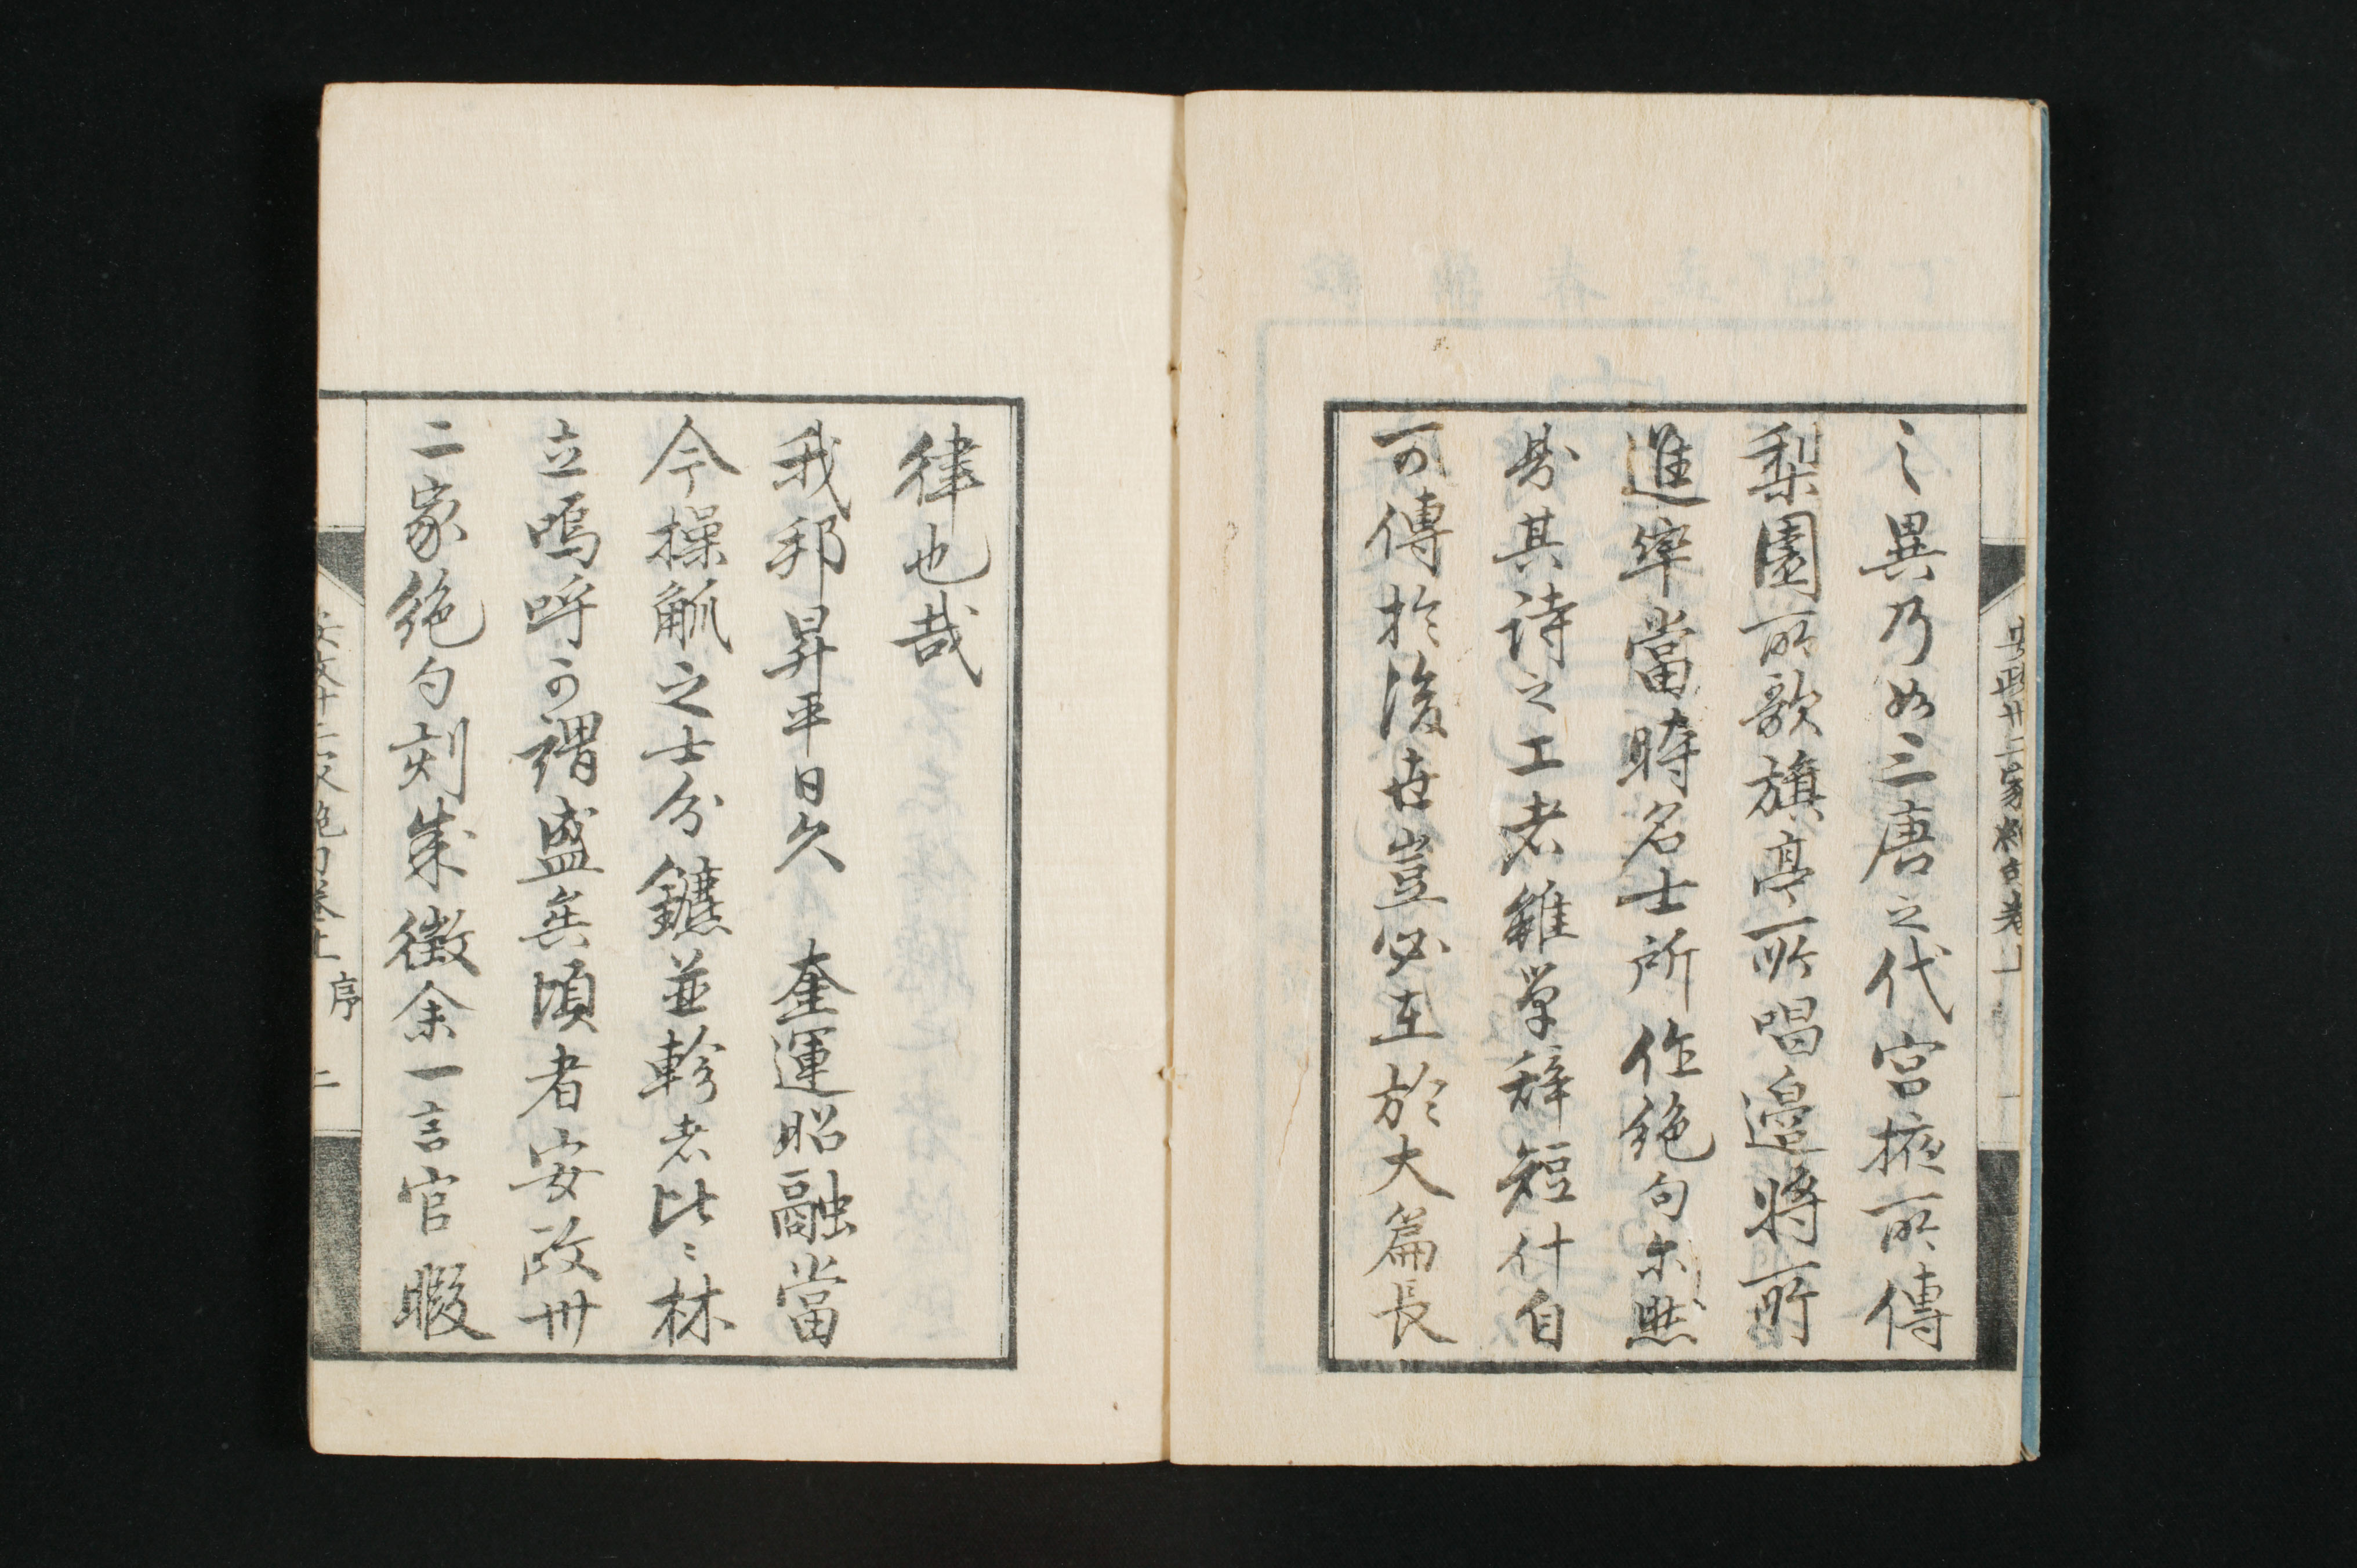 之異乃如三唐之代宮掖所傳
梨園所歌旗亭所唱邊將所
進率當時名士所作絶句尓然
則其詩之工者雖單辭短什自
可傳於後世豈必在於大篇長
律也哉
我邦昇平日久　奎運昭融當
今操觚之士分鑣並軫者比〻林
立嗚呼可謂盛矣頃者安政卅
二家絶句刻成徴余一言官暇
安政廿二家絶句卷上　序　二